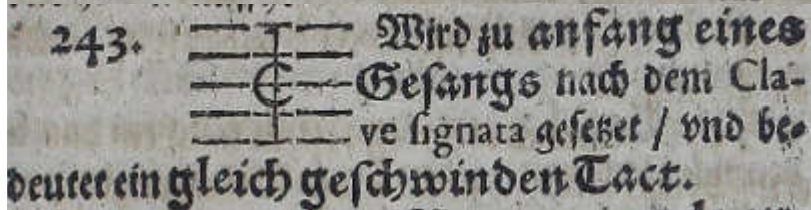 243. Wird zu anfang eines
Geſangs nach dem Cla-
ve ſignata geſetzet / vnd be-
deutet ein gleich geſchwinden Tact.